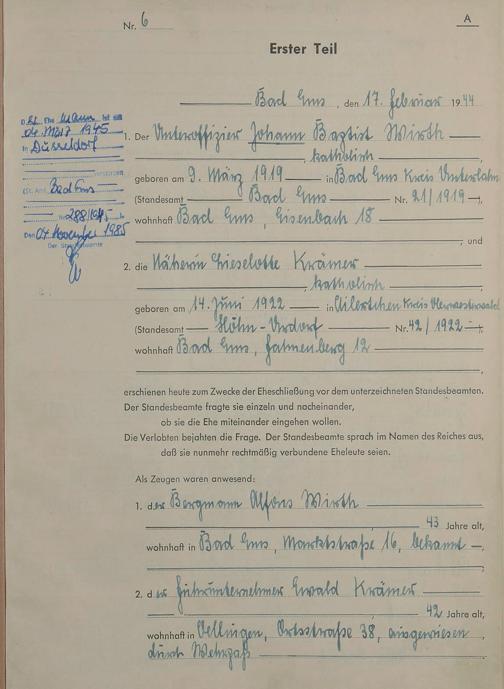 Nr. 6
A
Erster Teil
Bad Ems, den 17. Februar 1944
1. Der Unteroffizier Johann Baptist Wirth
katholisch
geboren am 9. März 1919 in Bad Ems Kreis Unterlahn
(Standesamt Bad Ems Nr. 21/1919),
wohnhaft Bad Ems, Eisenbach 18
; und
2. die Näherin Lieselotte Krämer
katholisch
geboren am 14. Juni 1922 in Ailertchen Kreis Oberwesterwald
(Standesamt Höhn-Urdorf Nr. 42/1922),
wohnhaft Bad Ems, Fahnenberg 12
erschienen heute zum Zwecke der Eheschließung vor dem unterzeichneten Standesbeamten.
Der Standesbeamte fragte sie einzeln und nacheinander,
ob sie die Ehe miteinander eingehen wollen.
Die Verlobten bejahten die Frage. Der Standesbeamte sprach im Namen des Reiches aus,
daß sie nunmehr rechtmäßig verbundene Eheleute seien.
Als Zeugen waren anwesend:
1. der Bergmann Alfons Wirth
43 Jahre alt,
wohnhaft in Bad Ems, Marktstraße 16, bekannt,
2. der Fuhrunternehmer Ewald Krämer
42 Jahre alt,
wohnhaft in Oellingen, Ortsstraße 38, ausgewiesen
durch Wehrpaß
D Ehemann ist am
04. März 1945
in Düsseldorf
(St. Amt Bad Ems
Nr. 288/1945
Den 04. November 1985
Der Standesbeamte